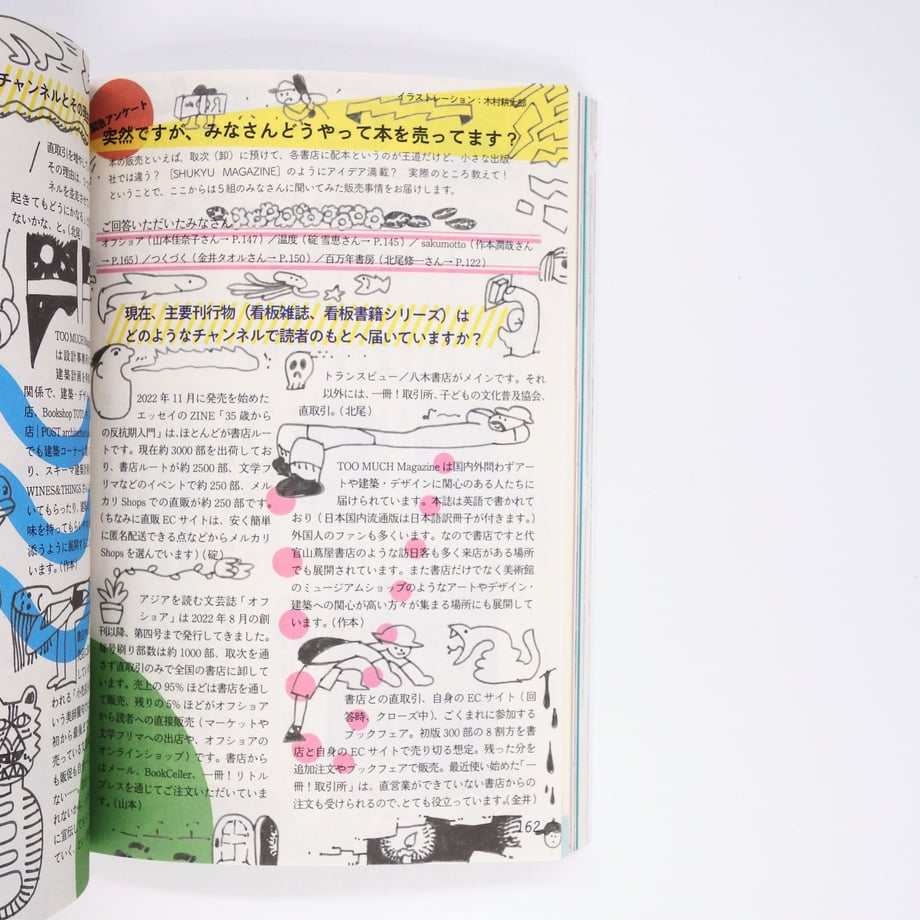 チャンネルとその
直取引を
その理由は、
ネルを並走させて
起きてもどうにかなる
ないかな、と。(北尾)
TOO MUCH
は設計事務所
建築計画を
関係で、建築・デ
店、Bookshop TOTO
店 | POST architecture
でも建築コーナー
り、スキーマ建築
WINES&THINGS
いてもらったり、
味を持ってもら
添うように展開す
います。(作本)
緊急アンケート
イラストレーション:木村耕太郎
突然ですが、みなさんどうやって本を売ってます?
本の販売といえば、取次(卸)に預けて、各書店に配本というのが王道だけど、小さな出版
社では違う? [SHUKYU MAGAZINE]のようにアイデア満載? 実際のところ教えて!
ということで、ここからは5組のみなさんに聞いてみた販売事情をお届けします。
ご回答いただいたみなさん
オフショア(山本佳奈子さん→ P.147)/温度(碇 雪恵さん→ P.145)/ sakumotto(作本潤哉さん
→ P.165)/つくづく(金井タオルさん→ P.150)/百万年書房(北尾修一さん→ P.122)
現在、主要刊行物(看板雑誌、看板書籍シリーズ)は
どのようなチャンネルで読者のもとへ届いていますか?
2022年11月に発売を始めた
エッセイのZINE「35歳から
の反抗期入門」は、ほとんどが書店ルー
トです。現在約3000部を出荷してお
り、書店ルートが約2500部、文学フ
リマなどのイベントで約250部、メル
カリShopsでの直販が約250部です。
(ちなみに直販ECサイトは、安く簡単
に匿名配送できる点などからメルカリ
Shopsを選んでいます)(碇)
アジアを読む文芸誌「オフ
ショア」は2022年8月の創
刊以降、第四号まで発行してきました。
毎号刷り部数は約1000部、取次を通
さず直取引のみで全国の書店に卸して
います。売上の95%ほどは書店を通し
て販売、残りの5%ほどがオフショア
から読者への直接販売(マーケットや
文学フリマへの出店や、オフショアの
オンラインショップ)です。書店から
はメール、BookCeller、一冊!リトル
プレスを通じてご注文いただいていま
す。(山本)
トランスビュー/八木書店がメインです。それ
以外には、一冊!取引所、子どもの文化普及協会、
直取引。(北尾)
TOO MUCH Magazineは国内外問わずアー
トや建築・デザインに関心のある人たちに
届けられています。本誌は英語で書かれて
おり(日本国内流通版は日本語訳冊子が付きます。)
外国人のファンも多くいます。なので書店ですと代
官山蔦屋書店のような訪日客も多く来店がある場所
でも展開されています。また書店だけでなく美術館
のミュージアムショップのようなアートやデザイン・
建築への関心が高い方々が集まる場所にも展開して
います。(作本)
書店との直取引、自身のECサイト(回
答時、クローズ中)、ごくまれに参加する
ブックフェア。初版300部の8割方を書
店と自身のECサイトで売り切る想定。残った分を
追加注文やブックフェアで販売。最近使い始めた「一
冊!取引所」は、直営業ができていない書店からの
注文も受けられるので、とても役立っています。(金井)
162